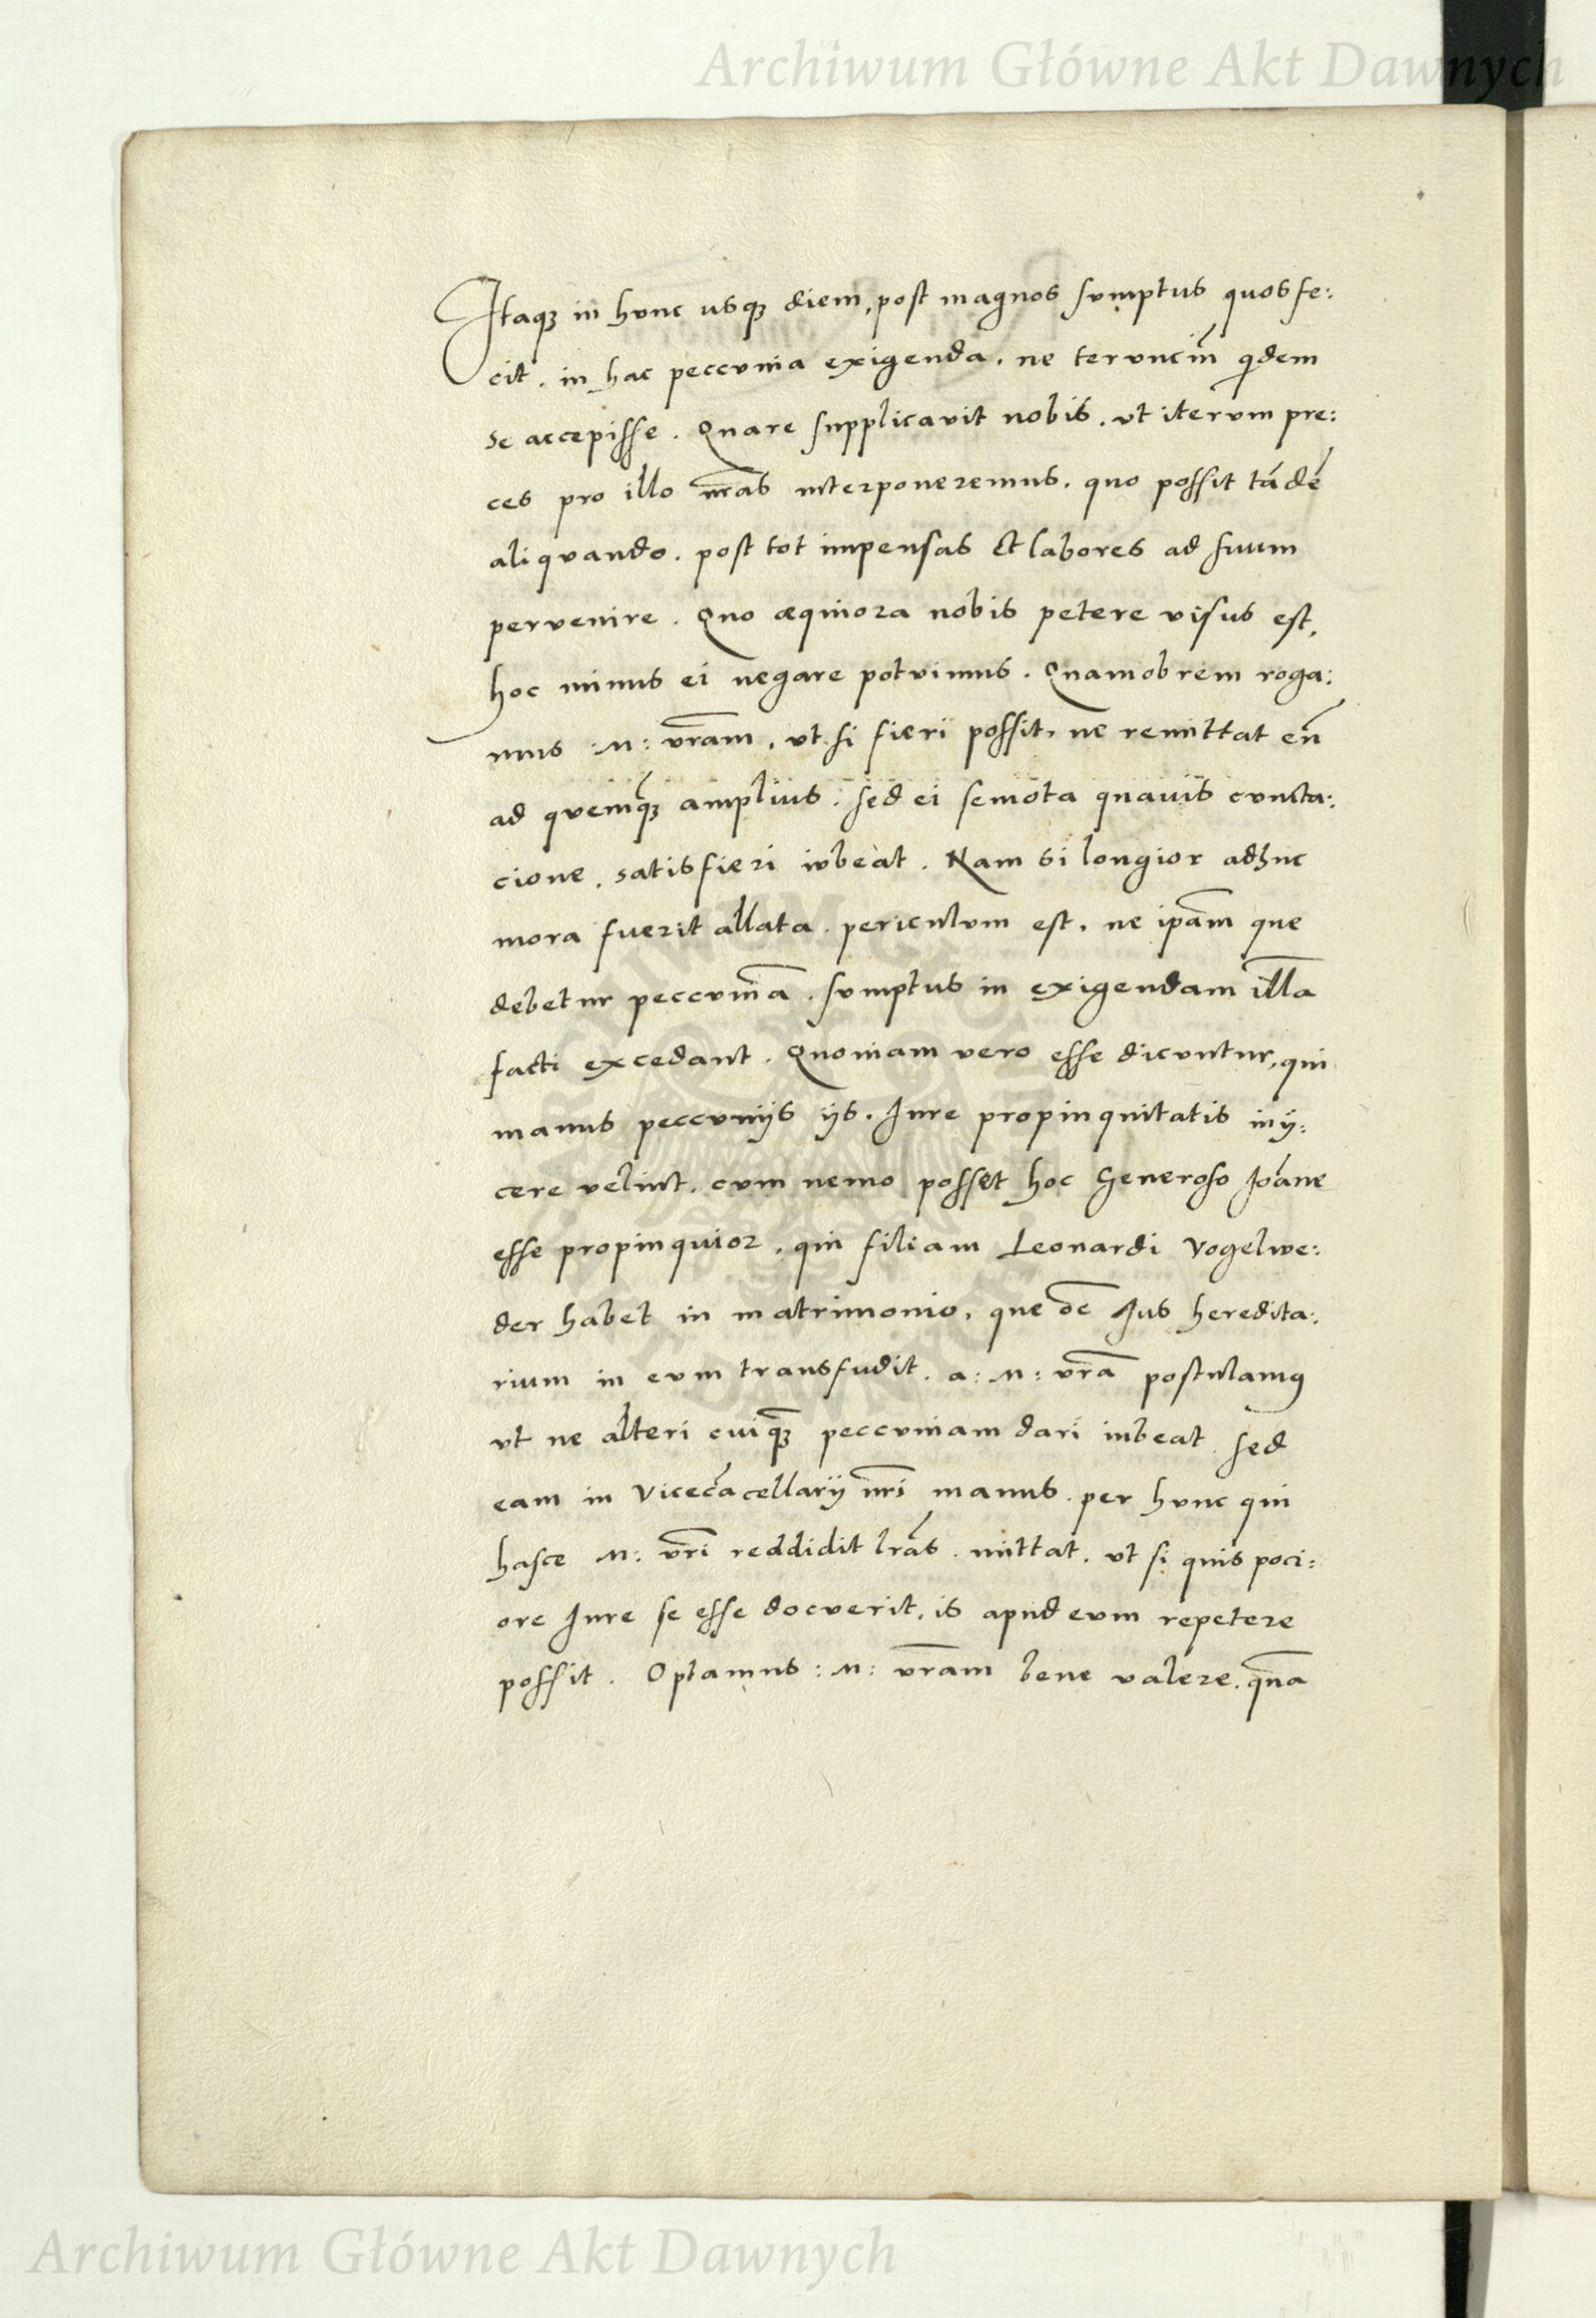 Archiwum Główne Akt Dawnych
Itaqȝ in hunc usqȝ diem, post magnos sumptus quos fe:
cit, in hac peccunia exigenda, ne teruncin̄ qdem
se accepisse. Quare supplicavit nobis, ut iterum pre:
ces pro illo nr̄as interponeremus, quo possit tādē
aliquando, post tot impensas et labores ad suum
pervenire. Quo æquiora nobis petere visus est,
hoc minus ei negare potuimus. Quamobrem roga:
mus :M: vr̄am, ut si fieri possit, ne remittat en̄
ad quemq̄ȝ amplius, sed ei semota quavis cuncta:
cione, satisfieri iubeat. Nam si longior adhuc
mora fuerit allata, periculum est, ne ip̄am que
debetur peccuniā, sumptus in exigendam illā
facti excedant. Quoniam vero esse dicuntur, qui
manus peccunijs ijs, Iure propinquitatis inij:
cere velint, cum nemo posset hoc Generoso Ioāne
esse propinquior, qui filiam Leonardi Vogelwe:
der habet in matrimonio, que oē Ius heredita:
rium in eum transfudit, a: M: vr̄a postulamꝰ
ut ne alteri cuiq̄ȝ peccuniam dari iubeat, sed
eam in Vicecācellarij nr̄i manus, per hunc qui
hasce M: vr̄i reddidit lr̄as, mittat, ut si quis poci:
ore Iure se esse docuerit, is apud eum repetere
possit. Optamus :M: vr̄am bene valere, quā
Archiwum Główne Akt Dawnych